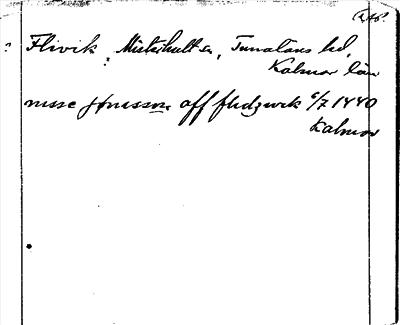 Flivik, Misterhult sn, Tunaläns hd,
Kalmar län
nisse jönssone aff flidzwik 6/7 1440
Kalmar